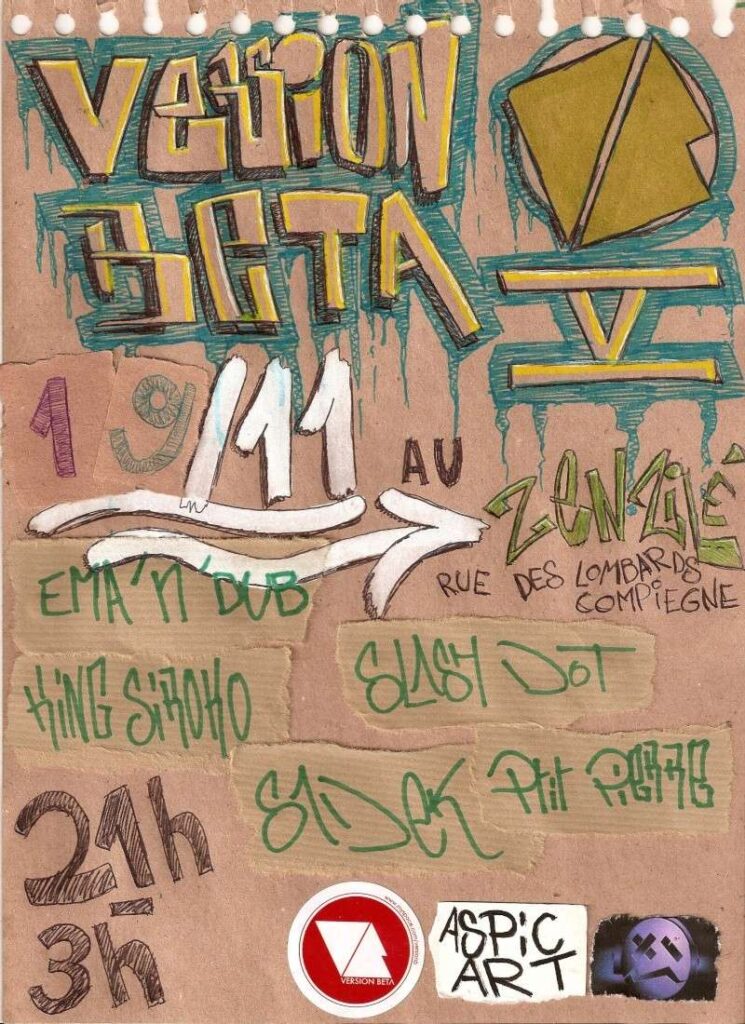 VERSION
BETA
V
19/11
AU
ZENZILÉ
RUE DES LOMBARDS
COMPIEGNE
EMA'N'DUB
KING SIROKO
SLASH DOT
SIDEK
Ptit PiERRE
21h
-
3h
VERSION BETA
ASPiC
ART